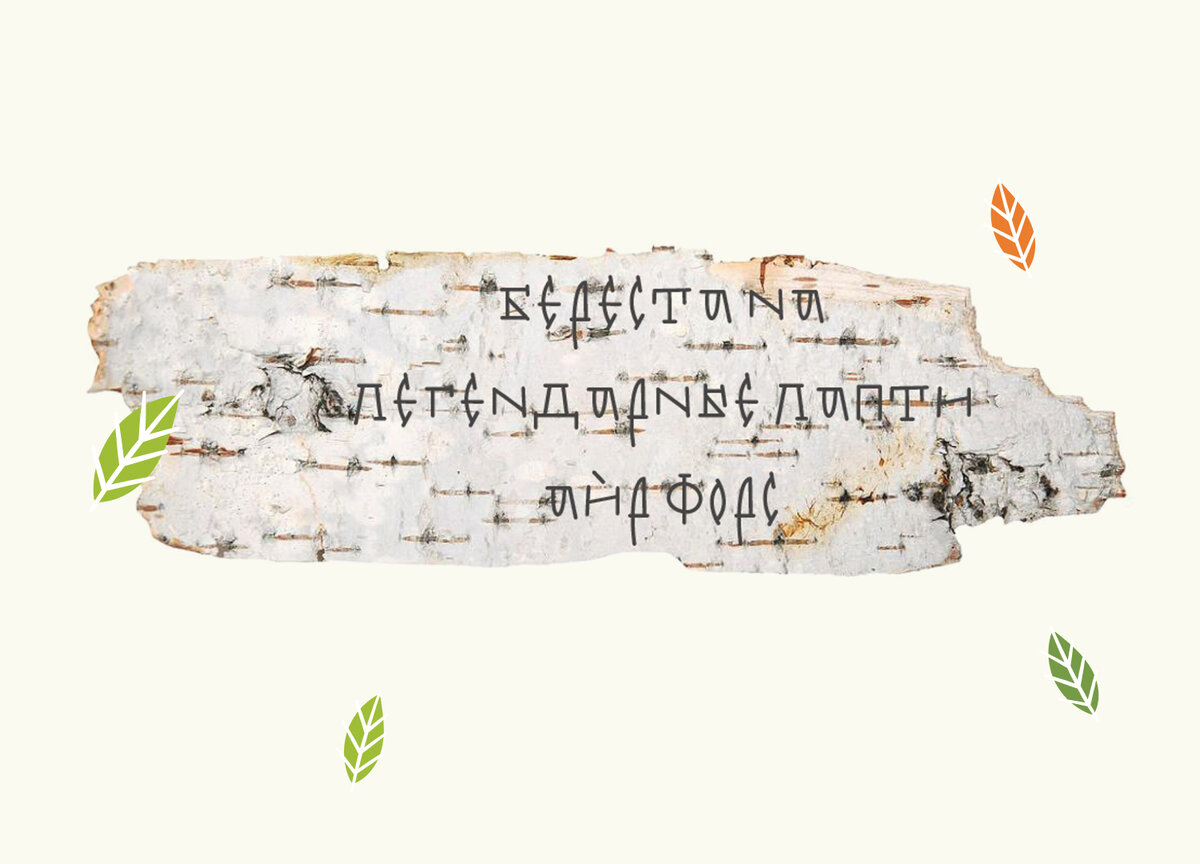 БЕРЕСТА НА
ЛЕГЕНДАРНЫЕ ЛАПТИ
АЙР ФОРС